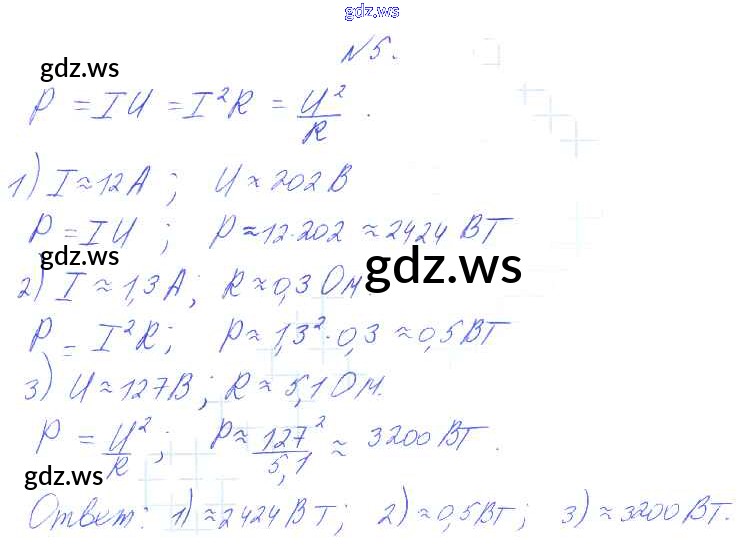 gdz.ws
№5.
gdz.ws
P = IU = I²R = U²/R .
1) I ≈ 12А ; U ≈ 202 В
P = IU ; P ≈ 12·202 ≈ 2424 ВТ
gdz.ws
gdz.ws
2) I ≈ 1,3 А ; R ≈ 0,3 Ом.
P = I²R ; P ≈ 1,3²·0,3 ≈ 0,5 ВТ
3) U ≈ 127В ; R ≈ 5,1 Ом.
P = U²/R ; P ≈ 127²/5,1 ≈ 3200 ВТ .
gdz.ws
Ответ: 1) ≈ 2424 ВТ ; 2) ≈ 0,5 ВТ ; 3) ≈ 3200 ВТ.